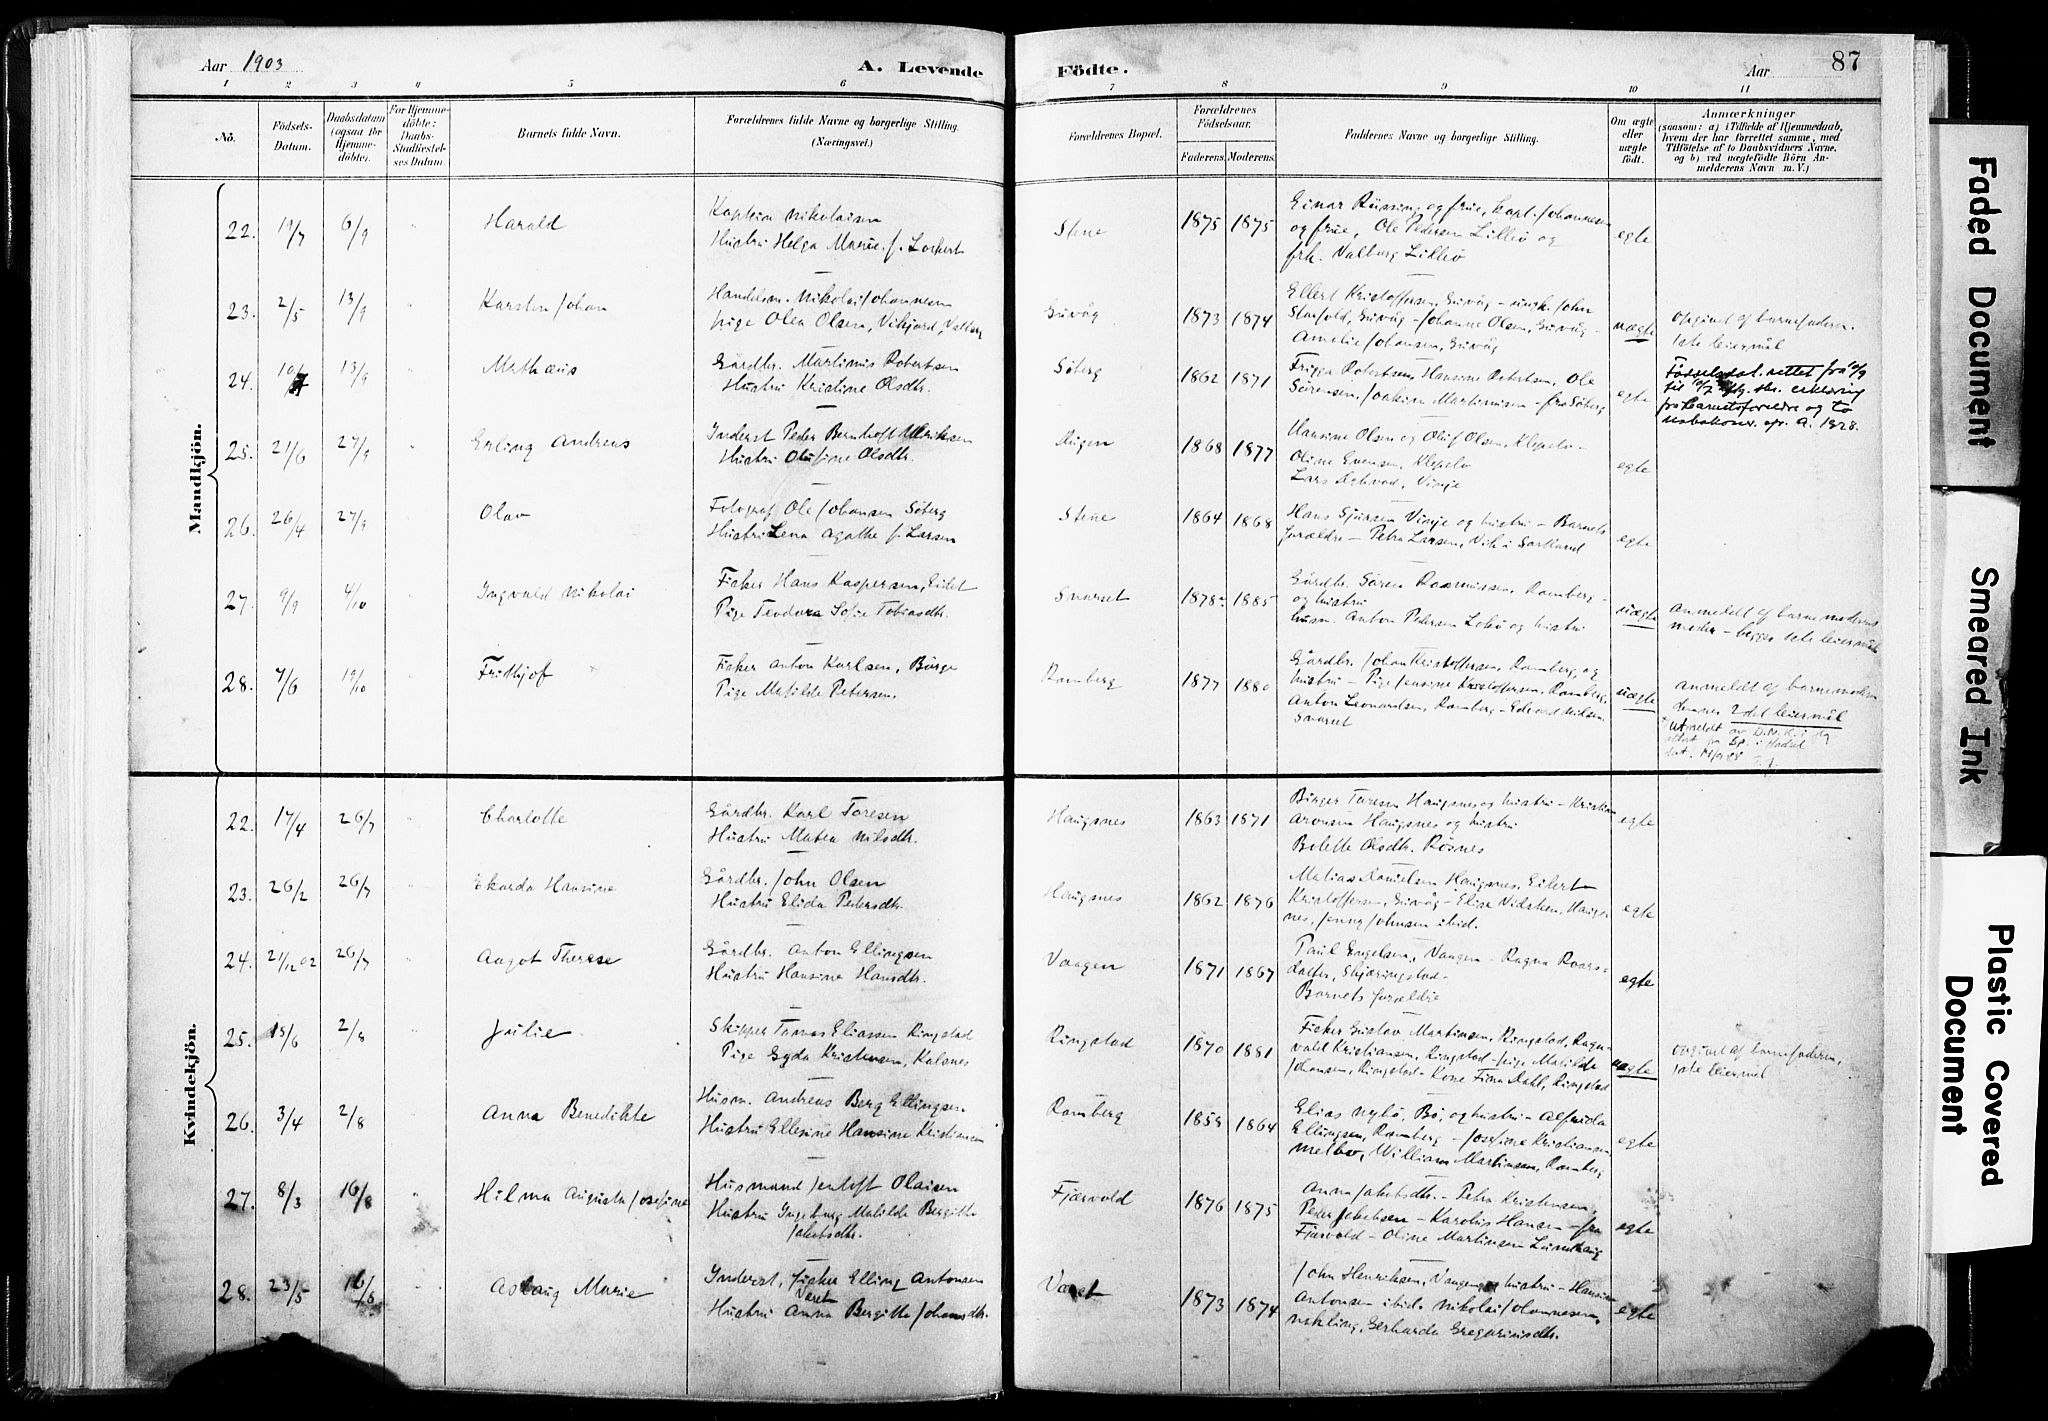 Aar 1903
A. Levende
Födte.
Aar
87
1 2 3 4 5 6 7 8 9 10 11
No.
Födsels-
Datum.
Daabsdatum
(ogsaa for
Hjemme-
döbte).
For Hjemme-
döbte:
Daabs-
Stadfæstel-
ses Datum.
Barnets fulde Navn.
Forældrenes fulde Navne og borgerlige Stilling.
(Næringsvei.)
Forældrenes Bopæl.
Forældrenes
Födselsaar.
Faderens. Moderens.
Faddernes Navne og borgerlig Stilling.
Om ægte
eller
uægte
födt.
Anmærkninger
(saasom: a) i Tilfælde af Hjemmedaab,
hvem der har forrettet samme, med
Tilföielse af to Daabsvidners Navne,
og b) ved uægtefödte Börn An-
melderens Navn m. V.)
Mandkjön.
22. 19/7 6/9 Harald
Kaptein Nikolaisen
Hustru Helga Marie f. Lockert
Stene 1875 1875
Einar Rüssing og frue, kapt. Johannesen
og frue, Ole Pedersen Lilleö og
frk. Valborg Lilleö
egte
23. 2/5 13/9 Karsten Johan
Handelsm. Nikolai Johannesen
pige Olea Olsen, Vikjord,
Guvåg 1873 1874
Ellert Kristoffersen, Guvåg - John
Johanne Olsen, Guvåg -
Amelie Johansen, Guvåg
uægte
opgivet af barnefaderen.
1ste leiermål
24. 10/7 13/9 Mathæus
Gårdbr. Martinus Robertsen
Hustru Kristine Olsdtr.
Söberg 1862 1871
Frigga Robertsen, Hansine Robertsen, Ole
Sörensen, Joakim Martinusen - fra Söberg
egte
Födselsdat. rettet fra 10/9
til 10/7 iflg. skr. erklæring
fra barnets forældre og to
25. 21/6 27/9 Erling Andreas
Inderst Peder Bernhoft Ulriksen
Hustru Olufine Olsdtr.
1868 1877
Hansine Olsen og Oluf Olsen, Klepelv -
Oline Evensen, Klepelv
Lars
egte
26. 26/4 27/9 Olav
Fotograf Ole Johansen Söberg
Hustru Lena Agathe f. Larsen
Stene 1864 1868
Hans Sjursen Vinje og hustru - Barnets
forældre - Petra Larsen, Vik i Sortland
egte
27. 9/9 4/10 Ingvald Nikolai
Fisker Hans Kaspersen, Eidet
Pige Teodora Sofie Tobiasdtr.
Svarset 1878 1885
Gårdbr. Sören Rasmussen, Ramberg -
og hustru
husm. Anton Pedersen og hustru
uægte
anmeldt af barnemoderens
moder - begges 1ste leiermål
28. 7/6 19/10 Fridthjof
Fisker Anton Karlsen, Börge
Pige Matilde Petersen.
Ramberg 1877 1880
Gårdbr. Johan Kristoffersen, Ramberg, og
hustru - Pige Jensine Kristoffersen, Ramberg,
Anton Leonardsen, Ramberg - Edvard Nilsen
Svarset
uægte
anmeldt af barnemoderen
dennes 2det leiermål
Kvindekjön.
22. 17/4 26/7 Charlotte
Gårdbr. Karl Toresen
Hustru Matea Nilsdtr.
Haugsnes 1863 1871
Birger Toresen Haugsnes og hustru - Kristian
Aronsen Haugsnes og hustru
Bolette Olsdtr. Rösnes
egte
23. 26/2 26/7 Ekarda Hansine
Gårdbr. John Olsen
Hustru Elida Pedersdtr.
Haugsnes 1862 1876
Matias Danielsen Haugsnes, Eilert
Kristoffersen, Guvåg - Elise Vidsteen, Haugs-
nes, Jenny Johnsen ibid.
egte
24. 21/12 02 26/7 Augot Therese
Gårdbr. Anton Ellingsen
Hustru Hansine Hansdtr.
Vaagen 1871 1867
Paul Engelsen, Vaagen - Ragna Roars-
datter, Skjæringstad -
Barnets forældre
egte
25. 15/6 2/8
Skipper Tomas Eliassen Ringstad
Pige Gyda Kristensen, Kalsnes
Ringstad 1870 1881
Fisker Gustav Martinsen, Ringstad, Ragn-
vald Kristiansen, Ringstad - pige Matilde
Johansen, Ringstad - Kone Fina Dahl, Ringstad
uægte
opgivet af barnefaderen,
1ste leiermål
26. 3/4 2/8 Anna Benedikte
Husm. Andreas Berg Ellingsen
Hustru Ellesine Hansine Kristiansen
Ramberg 1858 1864
Elias Nybö, Bö, og hustru - Alfrida
Ellingsen, Ramberg - Josefine Kristiansen
Melbo, William Martinsen, Ramberg,
egte
27. 8/3 16/8 Hilma Augusta Josefine
Husmand Jentoft Olaisen
Hustru Ingeborg Matilde Bergitte
Jakobsdtr.
Fjærvold 1876 1875
Anna Jakobsdtr. - Petra Kristensen,
Peder Jakobsen - Karolius Hansen - fra
Fjærvold - Oline Martinsen Lunshaug
egte
28. 23/5 16/8 Aslaug Marie
Inderst, fisker Elling Antonsen
Været
Hustru Anna Bergitte Johansdtr.
Været 1873 1874
John Henriksen, Vaagen og hustru - Hansine
Antonsen ibid. Nikolai Johannesen,
Nykling, Gerharda Gregoriusdtr.
egte
Faded Document
Smeared Ink
Plastic Covered
Document